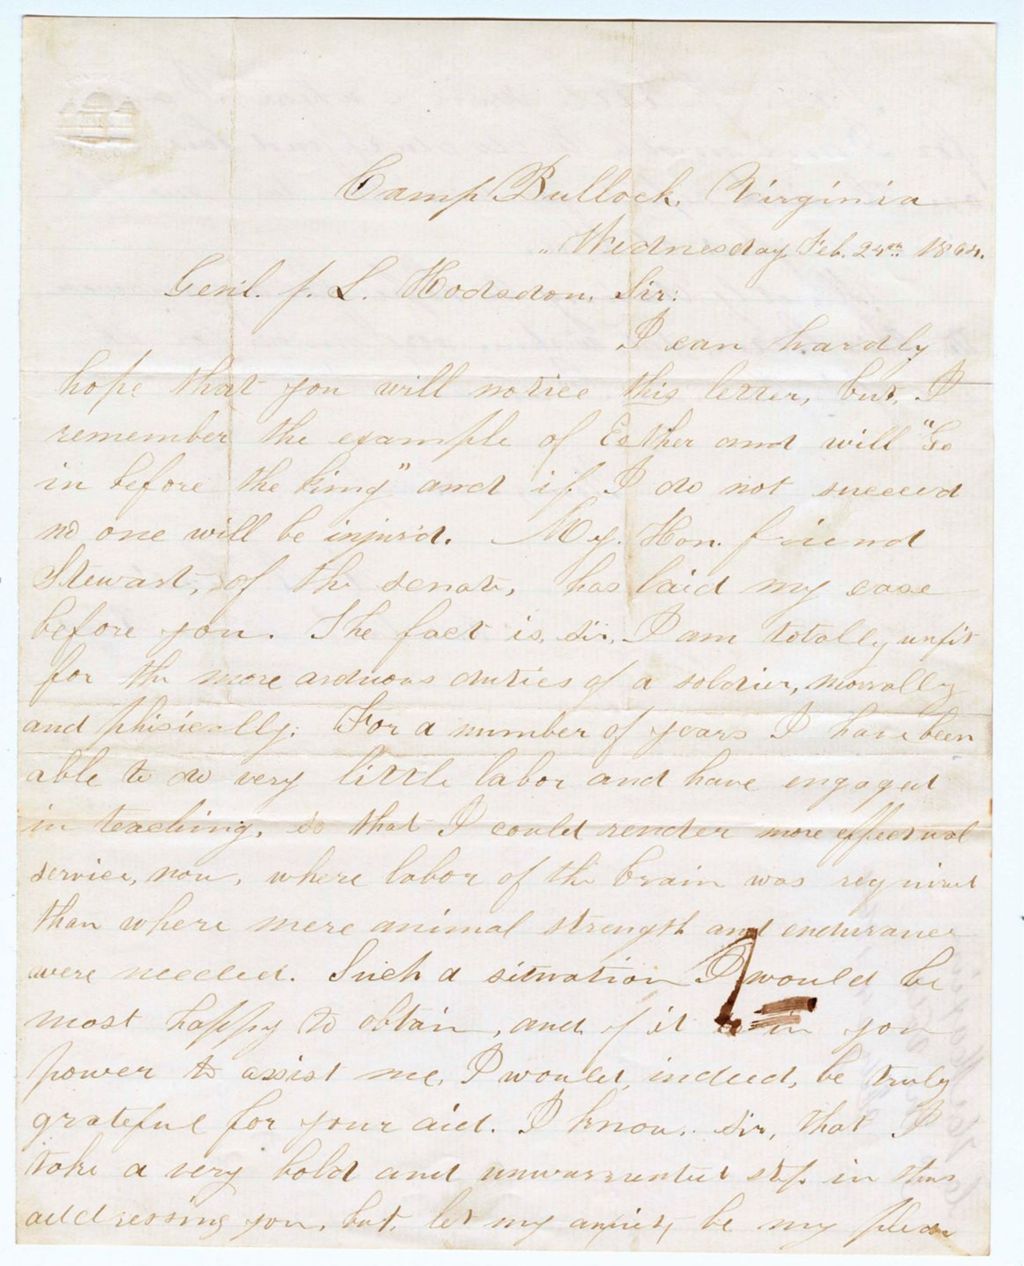 Camp Bullock, Virginia
Wednesday Feb. 24th 1864.
Genl. J. L. Hodsdon, Sir:
I can hardly
hope that you will notice this letter, but, I
remember the example of Esther and will "Go
in before the king" and if I do not succeed
no one will be injur'd. My. Hon. friend
Stewart, of the senate, has laid my case
before you. The fact is, sir, I am totally unfit
for the more arduous duties of a soldier, morrally
and phisically. For a number of years I have been
able to do very little labor and have engaged
in teaching, so that I could render more effectual
service, now, where labor of the brain was required
than where mere animal strength and endurance
were needed. Such a situation I would be
most happy to obtain, and if it in you
power to assist me, I would, indeed, be truly
grateful for your aid. I know, sir, that I
take a very bold and unwarrented step in thus
addressing you, but, let my anxiety be my plea